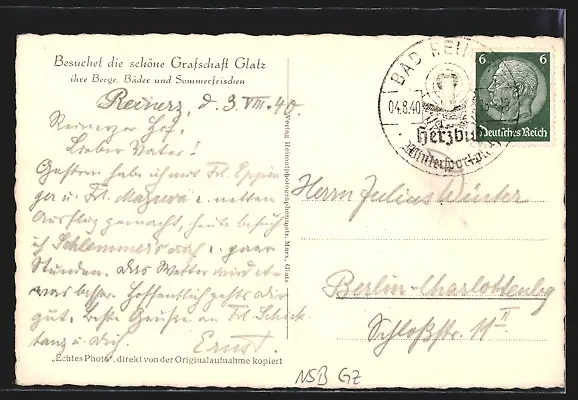 Besuchet die schöne Grafschaft Glatz
ihre Berge, Bäder und Sommerfrischen
Reinerz, d. 3. VIII. 40.
Reinerzer Hof.
Lieber Vater!
Gestern habe ich mit Frl. Eppin
ger u. Frl. einen netten
Ausflug gemacht, heute besuche
ich Schlemmers auf paar
Stunden. Das Wetter wird et-
was besser. Hoffentlich gehts dir
gut. Beste Grüße an Frl.
u. dich. Ernst.
„Echtes Photo“, direkt von der Originalaufnahme kopiert
Verlag Heimatphotographenanstr. Marx, Glatz
BAD REI
04.8.40
Herzbad
Wintersportplatz
6 6
Deutsches Reich
Herrn Julius Winter
Berlin-Charlottenbg
Schloßstr. 11 II
NSB GZ